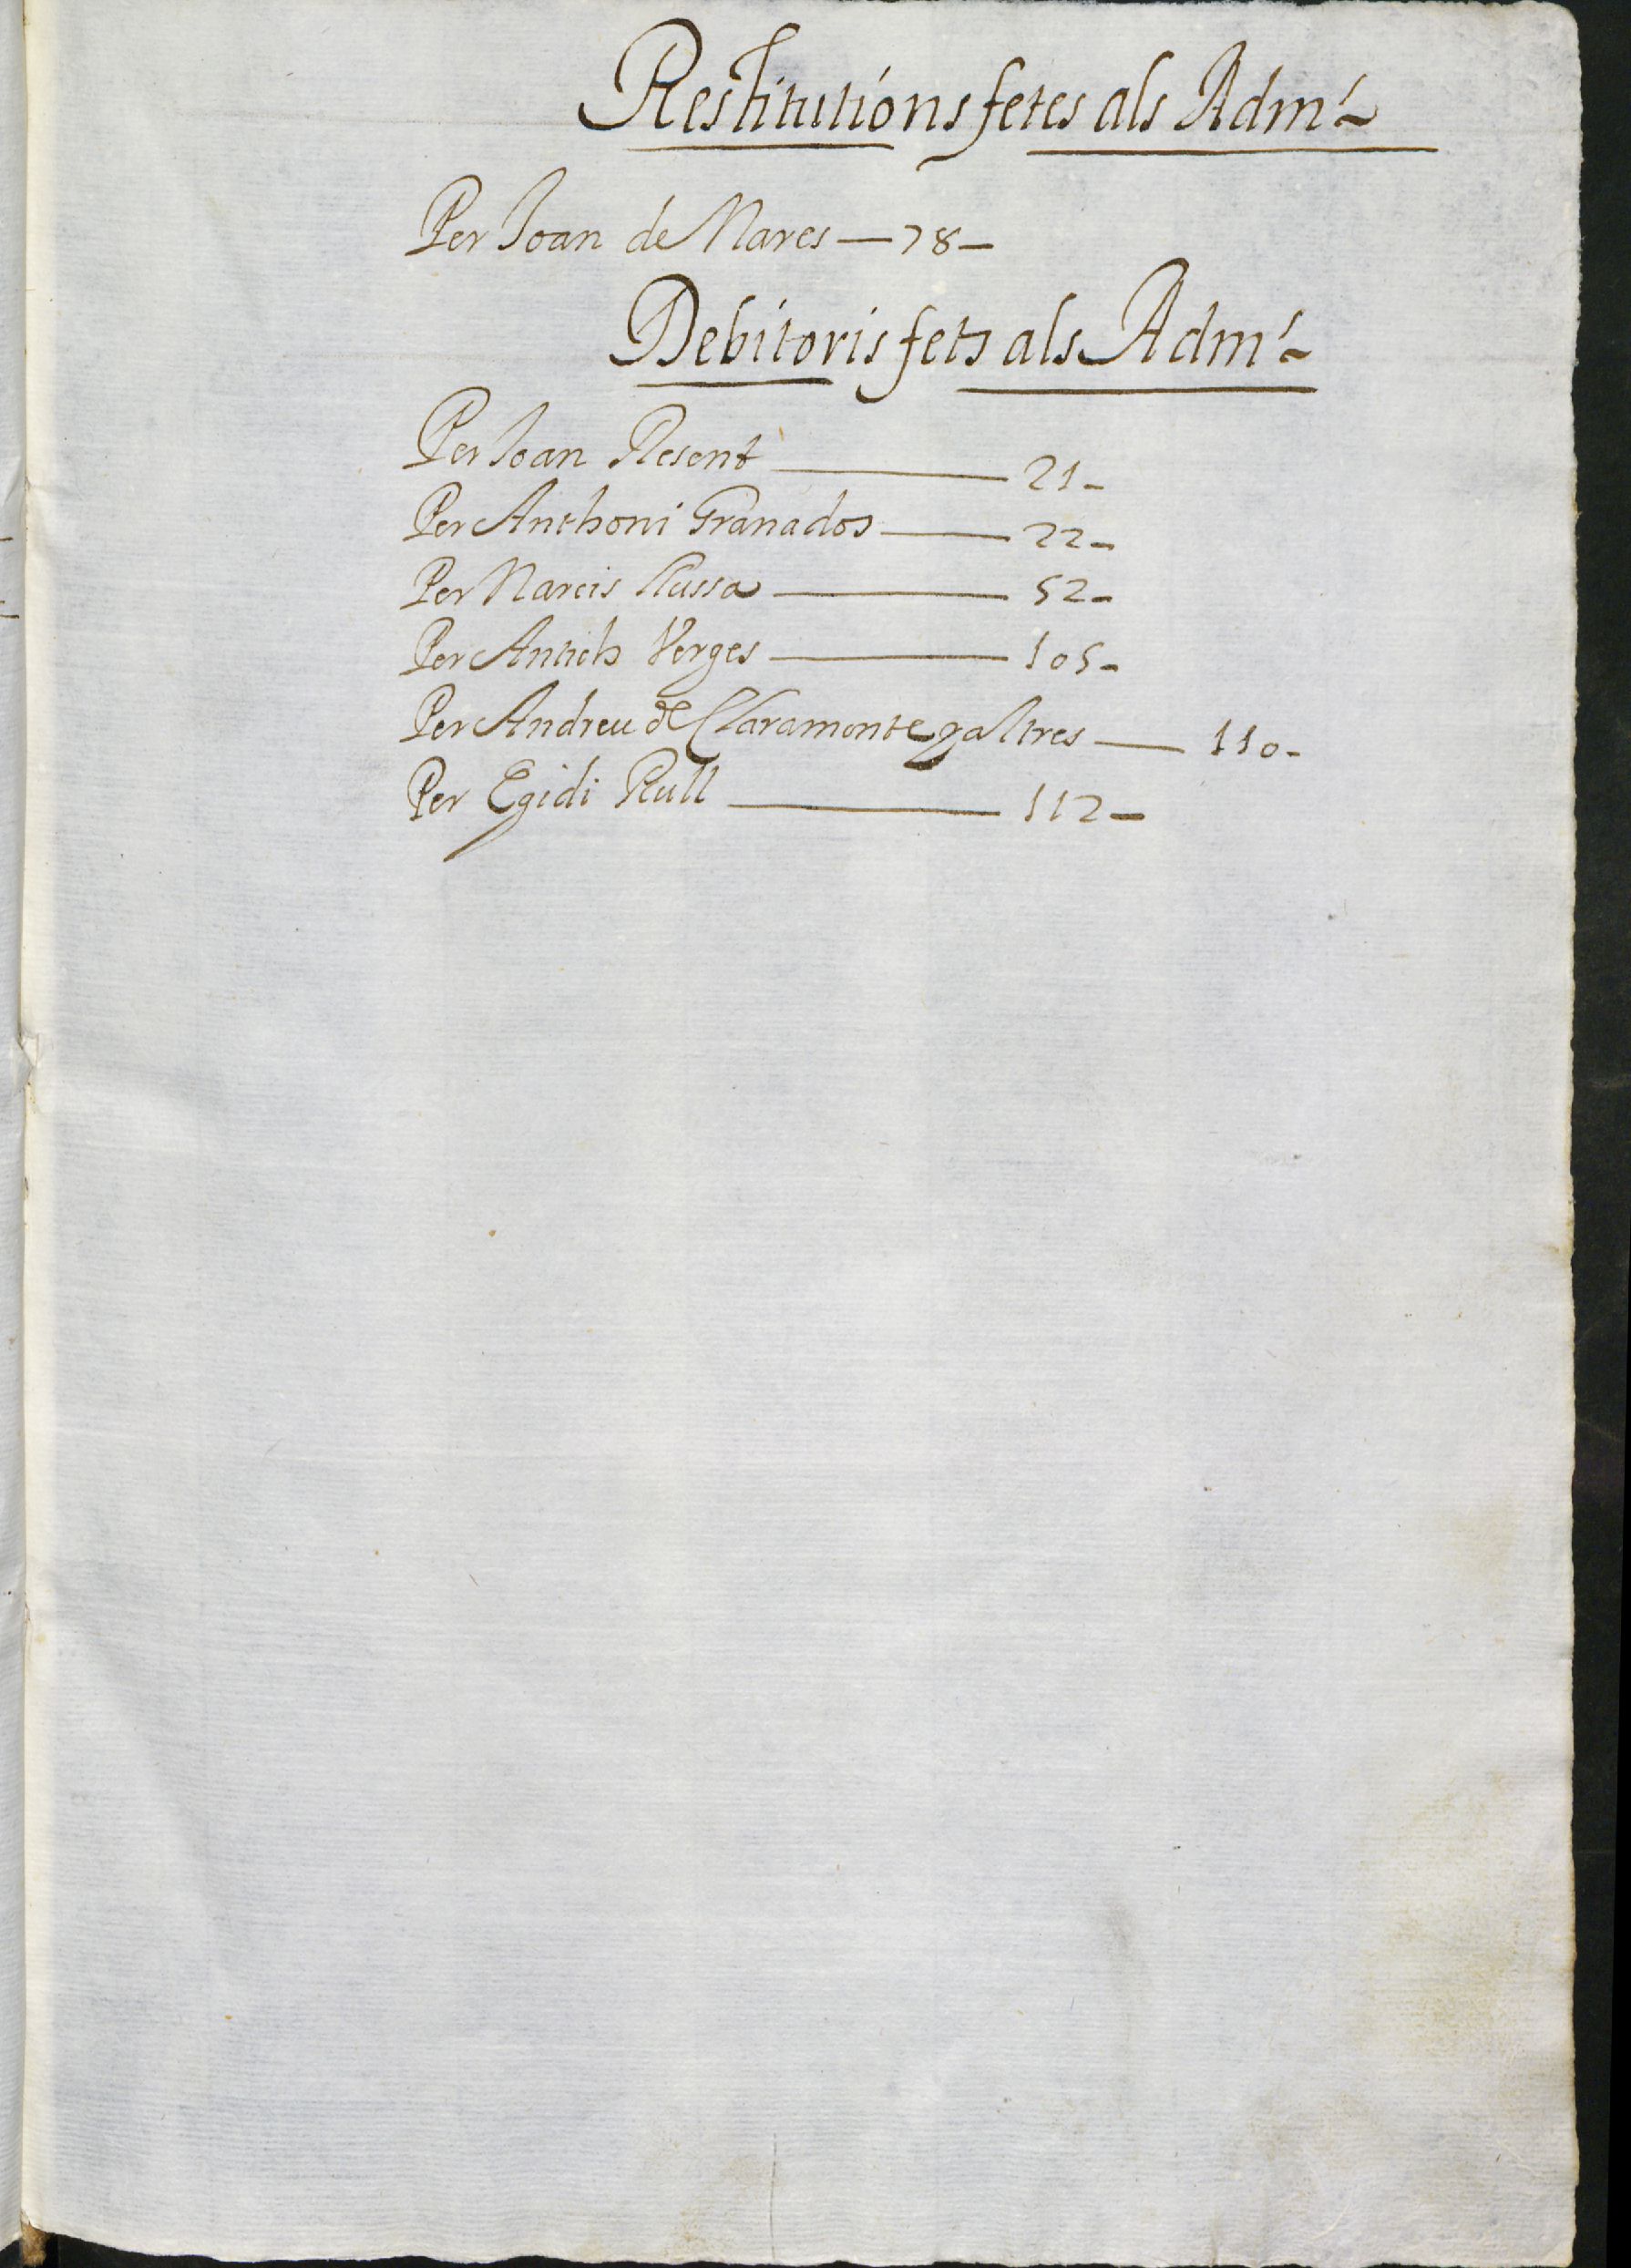 Restitutions fetes als Adm.
Per Joan de Nares — 78 —
Debitoris fets als Adm.
Per Joan Resent — 21 -
Per Anthoni Granados — 22 -
Per Narcis Russa — 52 -
Per Antich Verges — 105 -
Per Andreu de Claramonte y altres — 110 -
Per Egidi Rull — 112 —